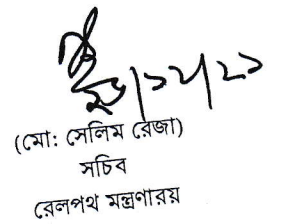 (মো: সেলিম রেজা)
সচিব
রেলপথ মন্ত্রণারয়